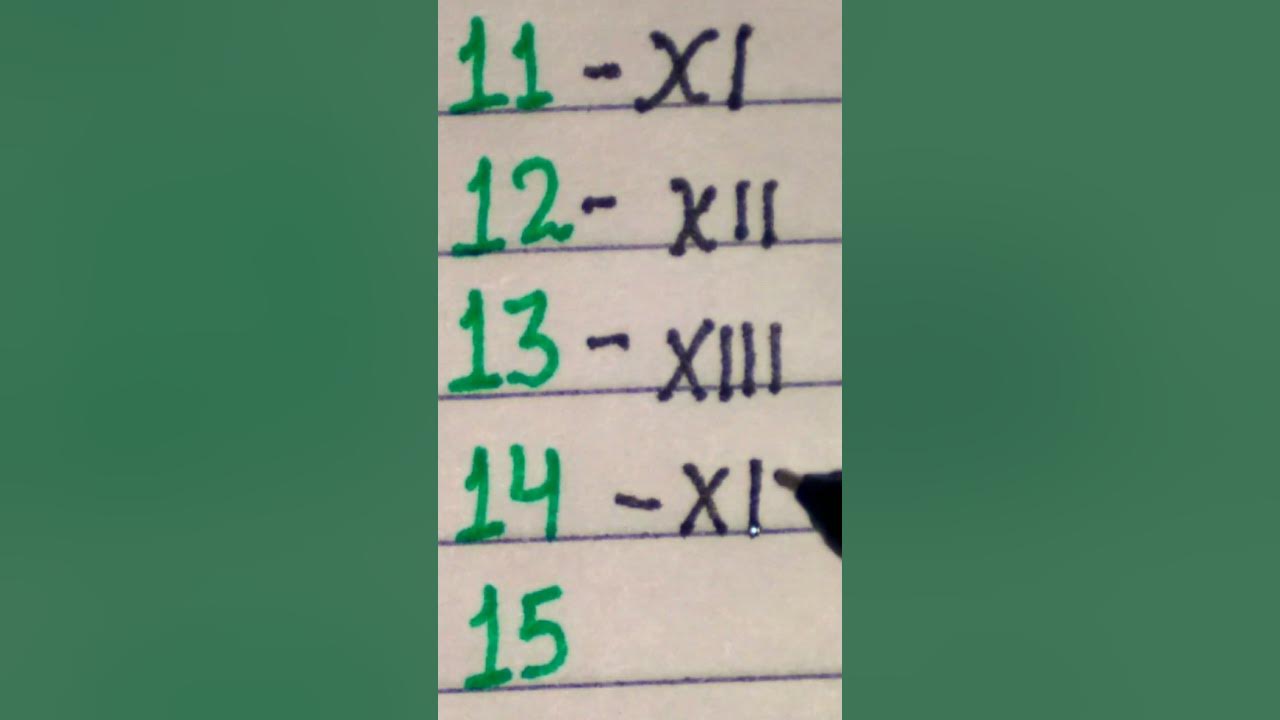 11 - XI
12 - XII
13 - XIII
14 - XI
15